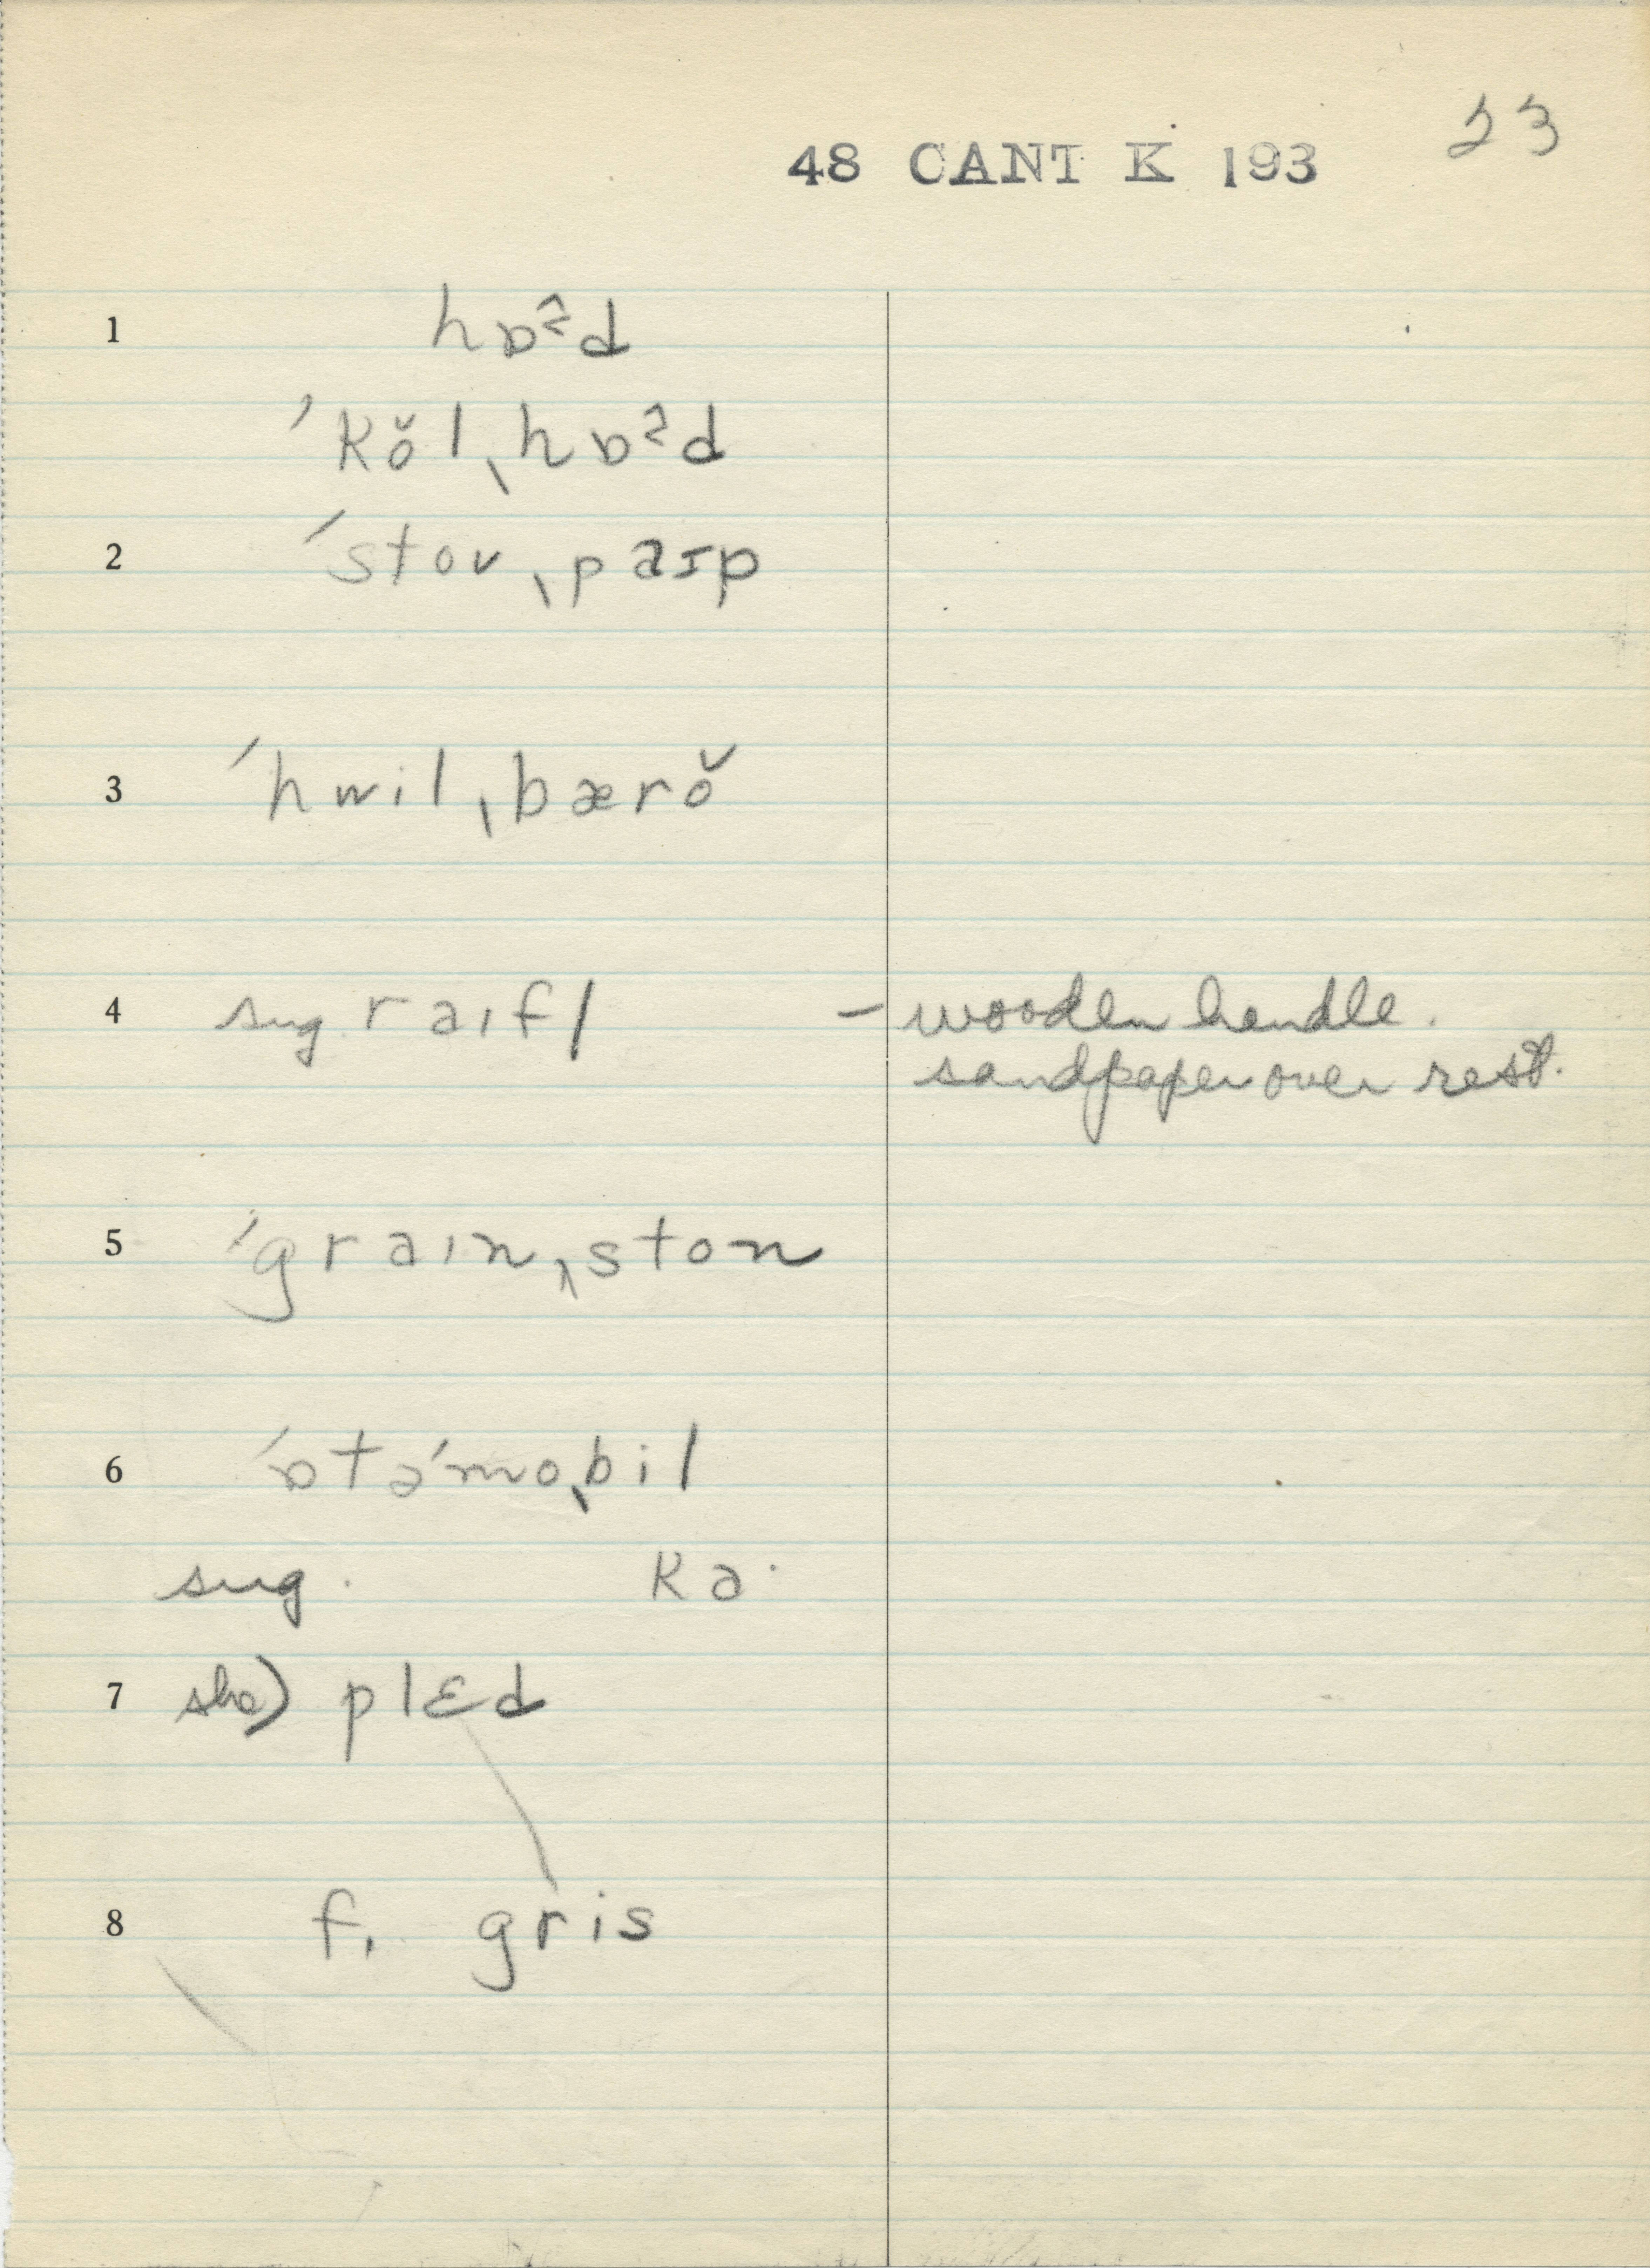 23
48 CANT K 193
1 hɒᵊ̂d
ˈkŏlˌhɒᵊ̂d
2 ˈstovˌpaɪp
3 ˈhwilˌbærŏ
4 sug. raɪfl – wooden handle.
sandpaper over rest.
5 ˈgraɪnˌston
6 ˈɒtəˈmoˌbil
sug. ka·
7 she) plɛd
8 f. gris